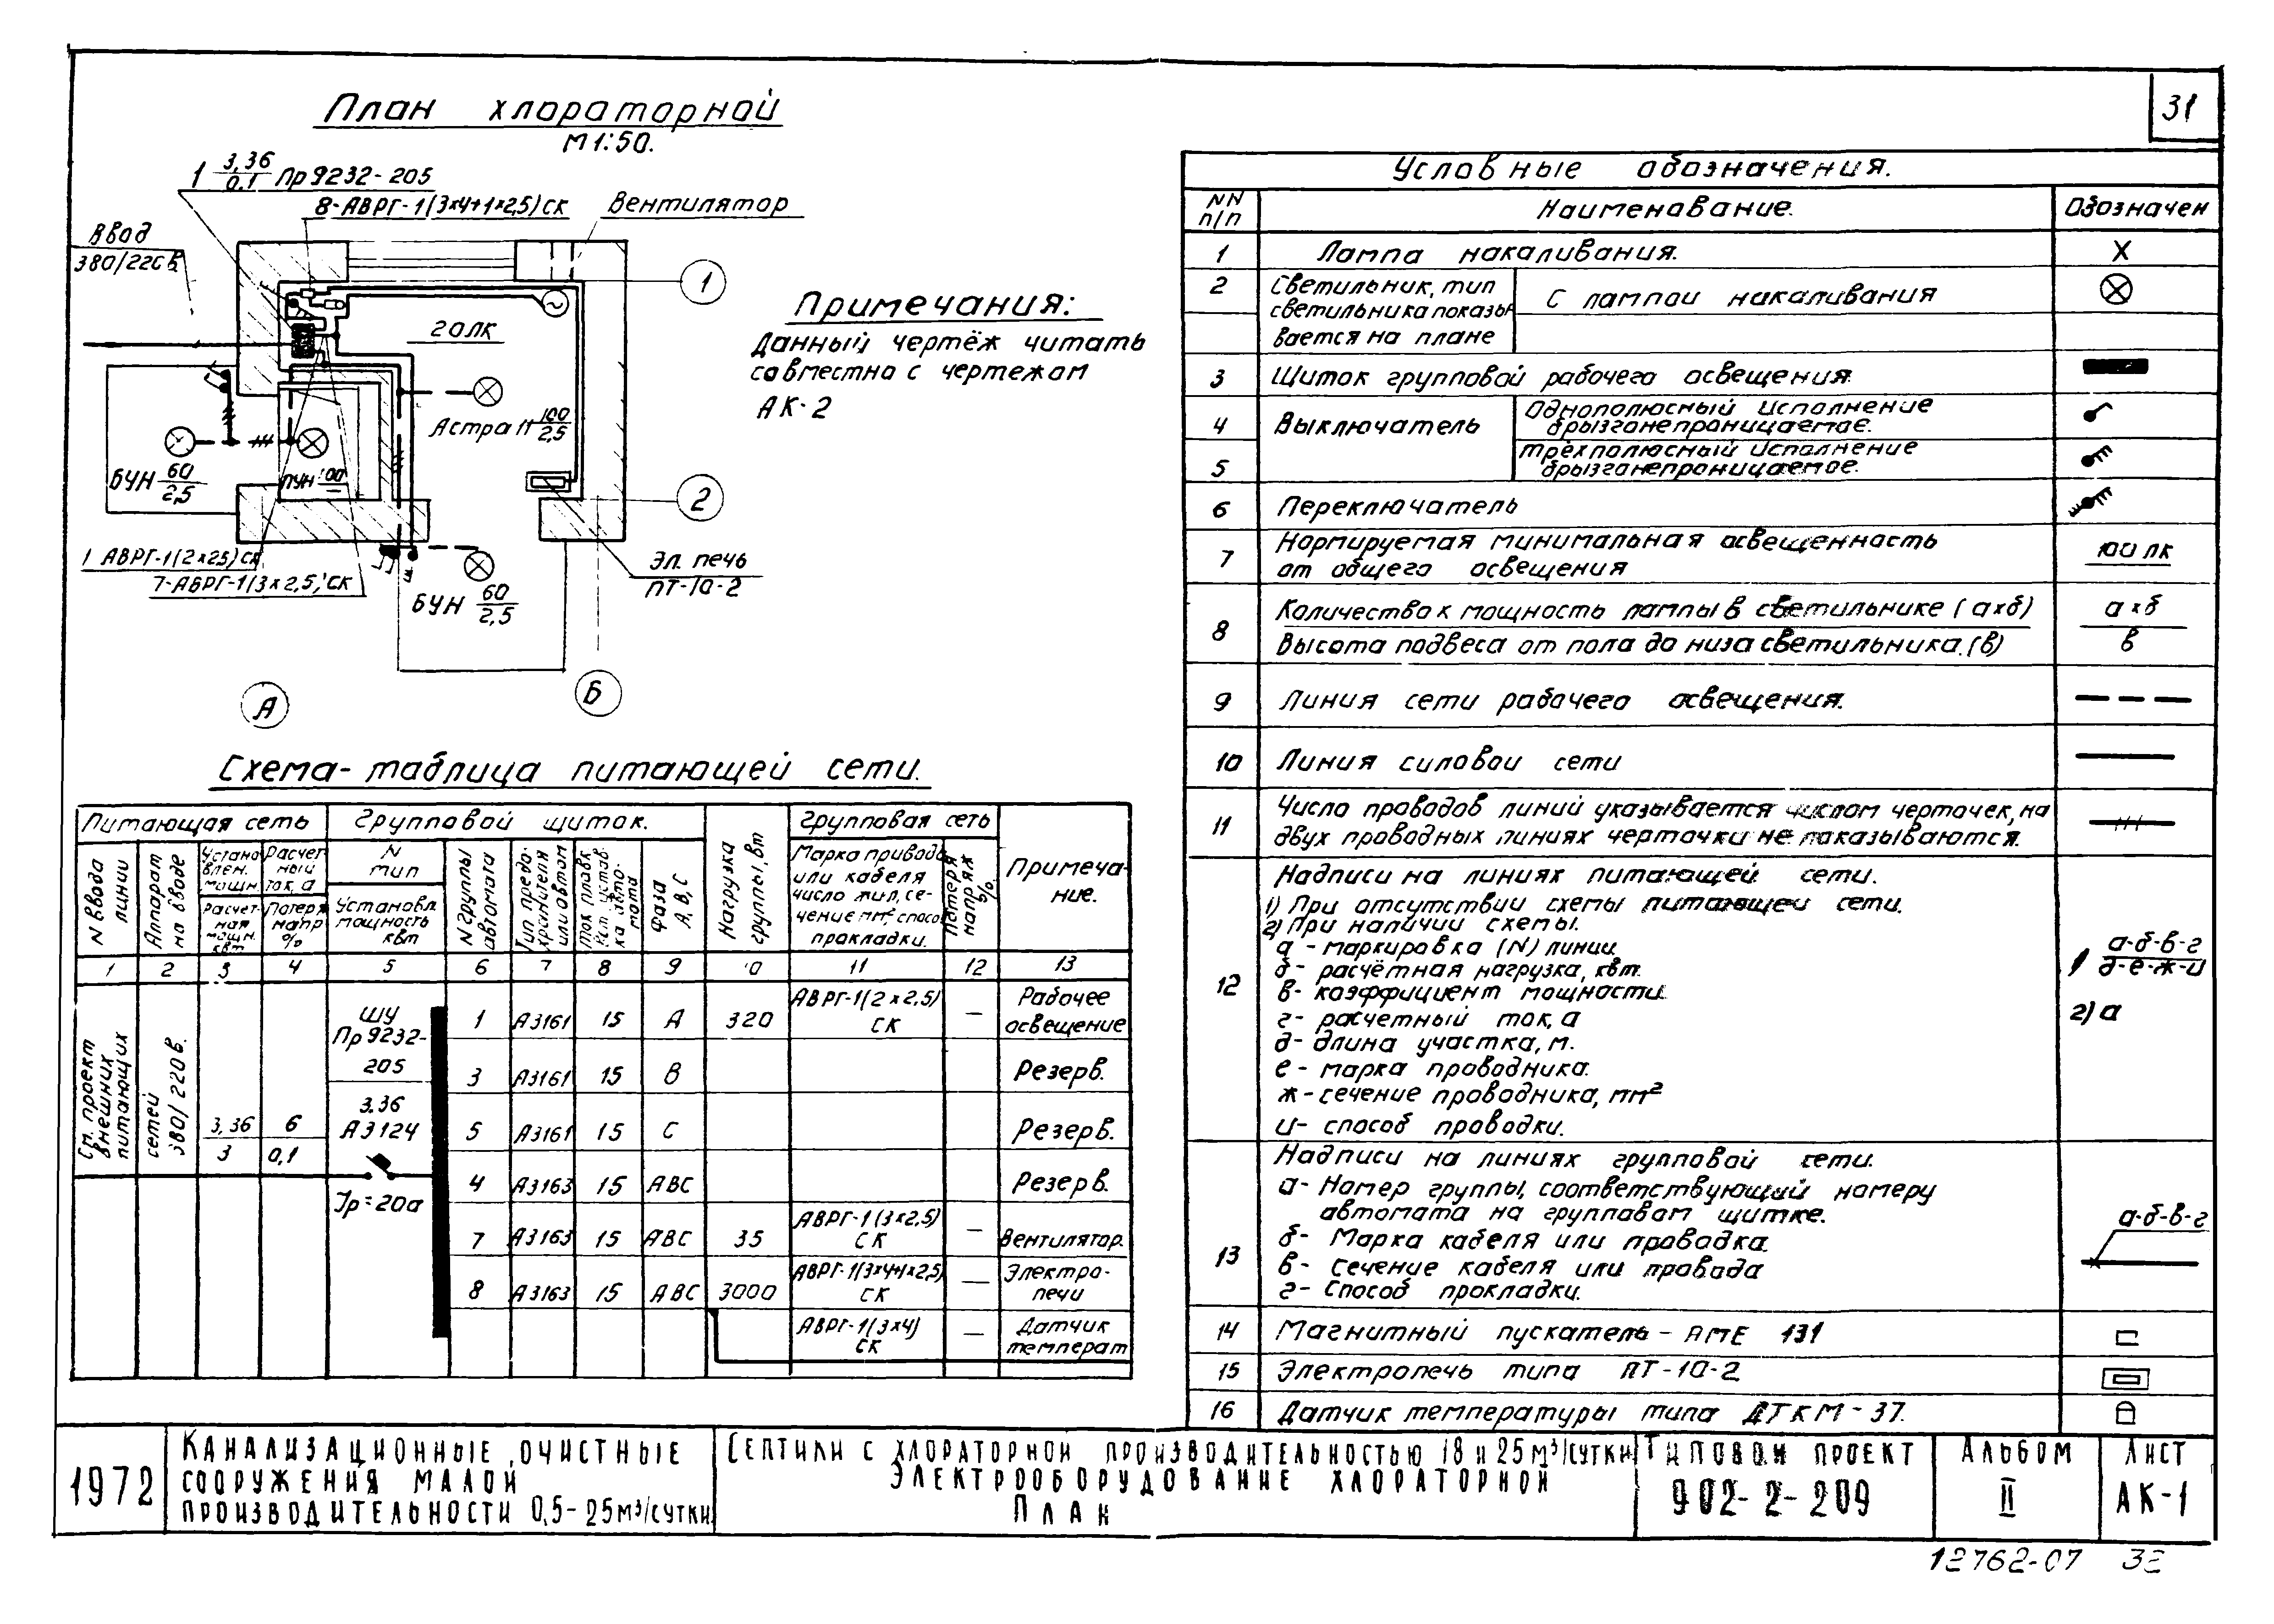 31
План хлораторной
М 1:50.
1 3,36/0,1 Пр 9232-205
8-АВРГ-1(3×4+1×2,5)СК
Вентилятор
Ввод
380/220В
1
20 ЛК
Астра 11 100/2,5
БУН 60/2,5
ПУН 100/—
2
1 АВРГ-1(2×2,5)СК
7-АВРГ-1(3×2,5)СК
БУН 60/2,5
Эл. печь
ПТ-10-2
А
Б
Примечания:
Данный чертёж читать
совместно с чертежом
АК-2
Схема-таблица питающей сети.
Питающая сеть
Групповой щиток.
Нагрузка группы, вт
Групповая сеть
Примеча-
ние.
N ввода линии
Аппарат на вводе
Установлен. мощн.
Расчетный ток, а
Расчетная мощн. квт
Потеря напр %
N
тип
Установл
мощность
квт
N группы автомата
Тип предохранителя или автом
Ток плавк. вст. устав-ка авто-мата
Фаза А, В, С
Марка провода
или кабеля
число жил, се-
чение мм², способ
прокладки.
Потеря напряж %
1 2 3 4 5 6 7 8 9 10 11 12 13
См. проект внешних питающих сетей
380/220 в.
3,36/3
6/0,1
ШУ
Пр 9232-
205
3.36
А3124
Iр=20а
1 А3161 15 А 320 АВРГ-1(2×2,5) СК — Рабочее освещение
3 А3161 15 В Резерв.
5 А3161 15 С Резерв.
4 А3163 15 АВС Резерв.
7 А3163 15 АВС 35 АВРГ-1(3×2,5) СК — Вентилятор.
8 А3163 15 АВС 3000 АВРГ-1(3×4+1×2,5) СК — Электро-печи
АВРГ-1(3×4) СК — Датчик температ
Условные обозначения.
NN п/п
Наименование.
Обозначен
1 Лампа накаливания. X
2 Светильник, тип
светильника показы
вается на плане
С лампой накаливания
3 Щиток групповой рабочего освещения.
4 Выключатель
Однополюсный исполнение
брызганепроницаемае.
5 трёхполюсный исполнение
брызганепроницаемое.
6 Переключатель
7 Нормируемая минимальная освещенность
от общего освещения
100 лк
8 Количество х мощность лампы в светильнике (а×б)
Высота подвеса от пола до низа светильника.(в)
а×б
в
9 Линия сети рабочего освещения.
10 Линия силовои сети
11 Число проводов линий указывается числом черточек, на
двух проводных линиях черточки не показываются.
12 Надписи на линиях питающей сети.
1) При отсутствии схемы питающей сети.
2) При наличии схемы.
а - маркировка (N) линии.
б - расчётная нагрузка, квт.
в - коэффициент мощности.
г - расчетный ток, а
д - длина участка, м.
е - марка проводника.
ж - сечение проводника, мм²
и - способ проводки.
1) а-б-в-г
д-е-ж-и
2) а
13 Надписи на линиях групповой сети.
а - Номер группы, соответствующий номеру
автомата на групповом щитке.
б - Марка кабеля или проводка.
в - Сечение кабеля или провода
г - Способ прокладки.
а-б-в-г
14 Магнитный пускатель - ПМЕ 131
15 Электропечь типа ПТ-10-2
16 Датчик температуры типа ДТКМ-37.
1972
Канализационные очистные
сооружения малой
производительности 0,5-25м³/сутки
Септики с хлораторной производительностью 18 и 25 м³/сутки
Электрооборудование хлораторной
План
Типовой проект
902-2-209
Альбом
II
Лист
АК-1
12762-07 32